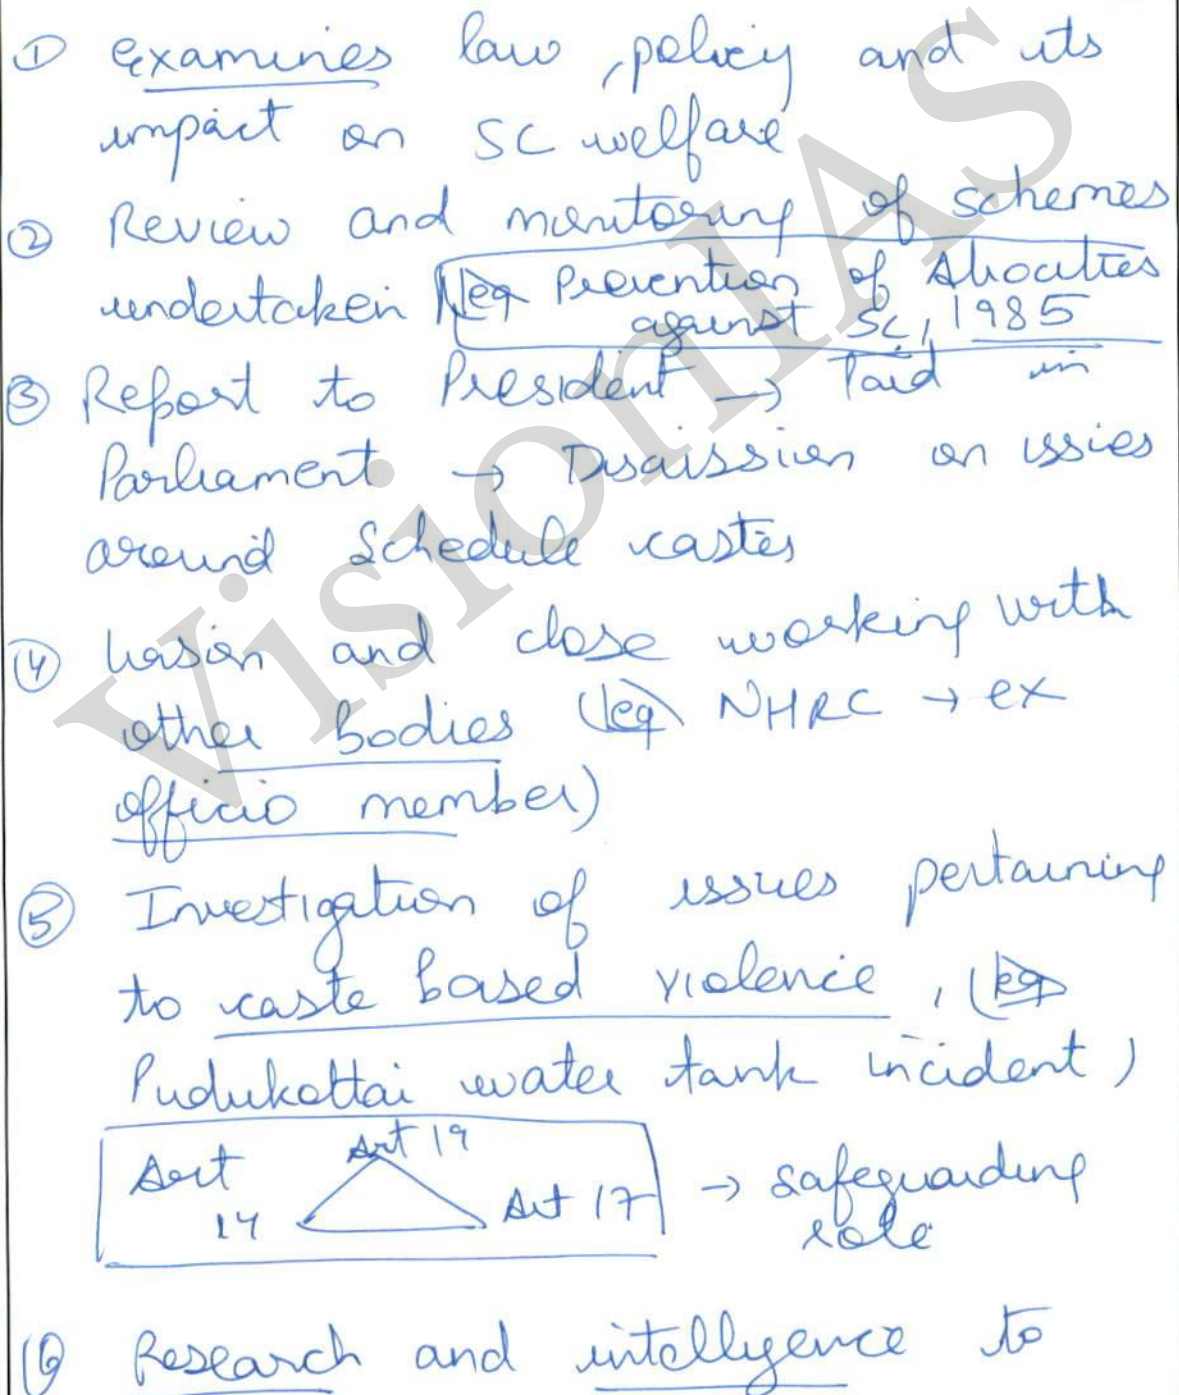 ① examines law, policy and its
impact on SC welfare
② Review and monitoring of schemes
undertaken (eg Prevention of Atrocities
against SC, 1985
③ Report to President → laid in
Parliament → Discussion on issies
around Schedule castes
④ liasion and close working with
other bodies (eg NHRC → ex
officio member)
⑤ Investigation of issues pertaining
to caste based violence, (eg
Pudukottai water tank incident)
Art 14 Art 19 Art 17 → safeguarding
role
⑥ Research and intelligence to
VisionIAS